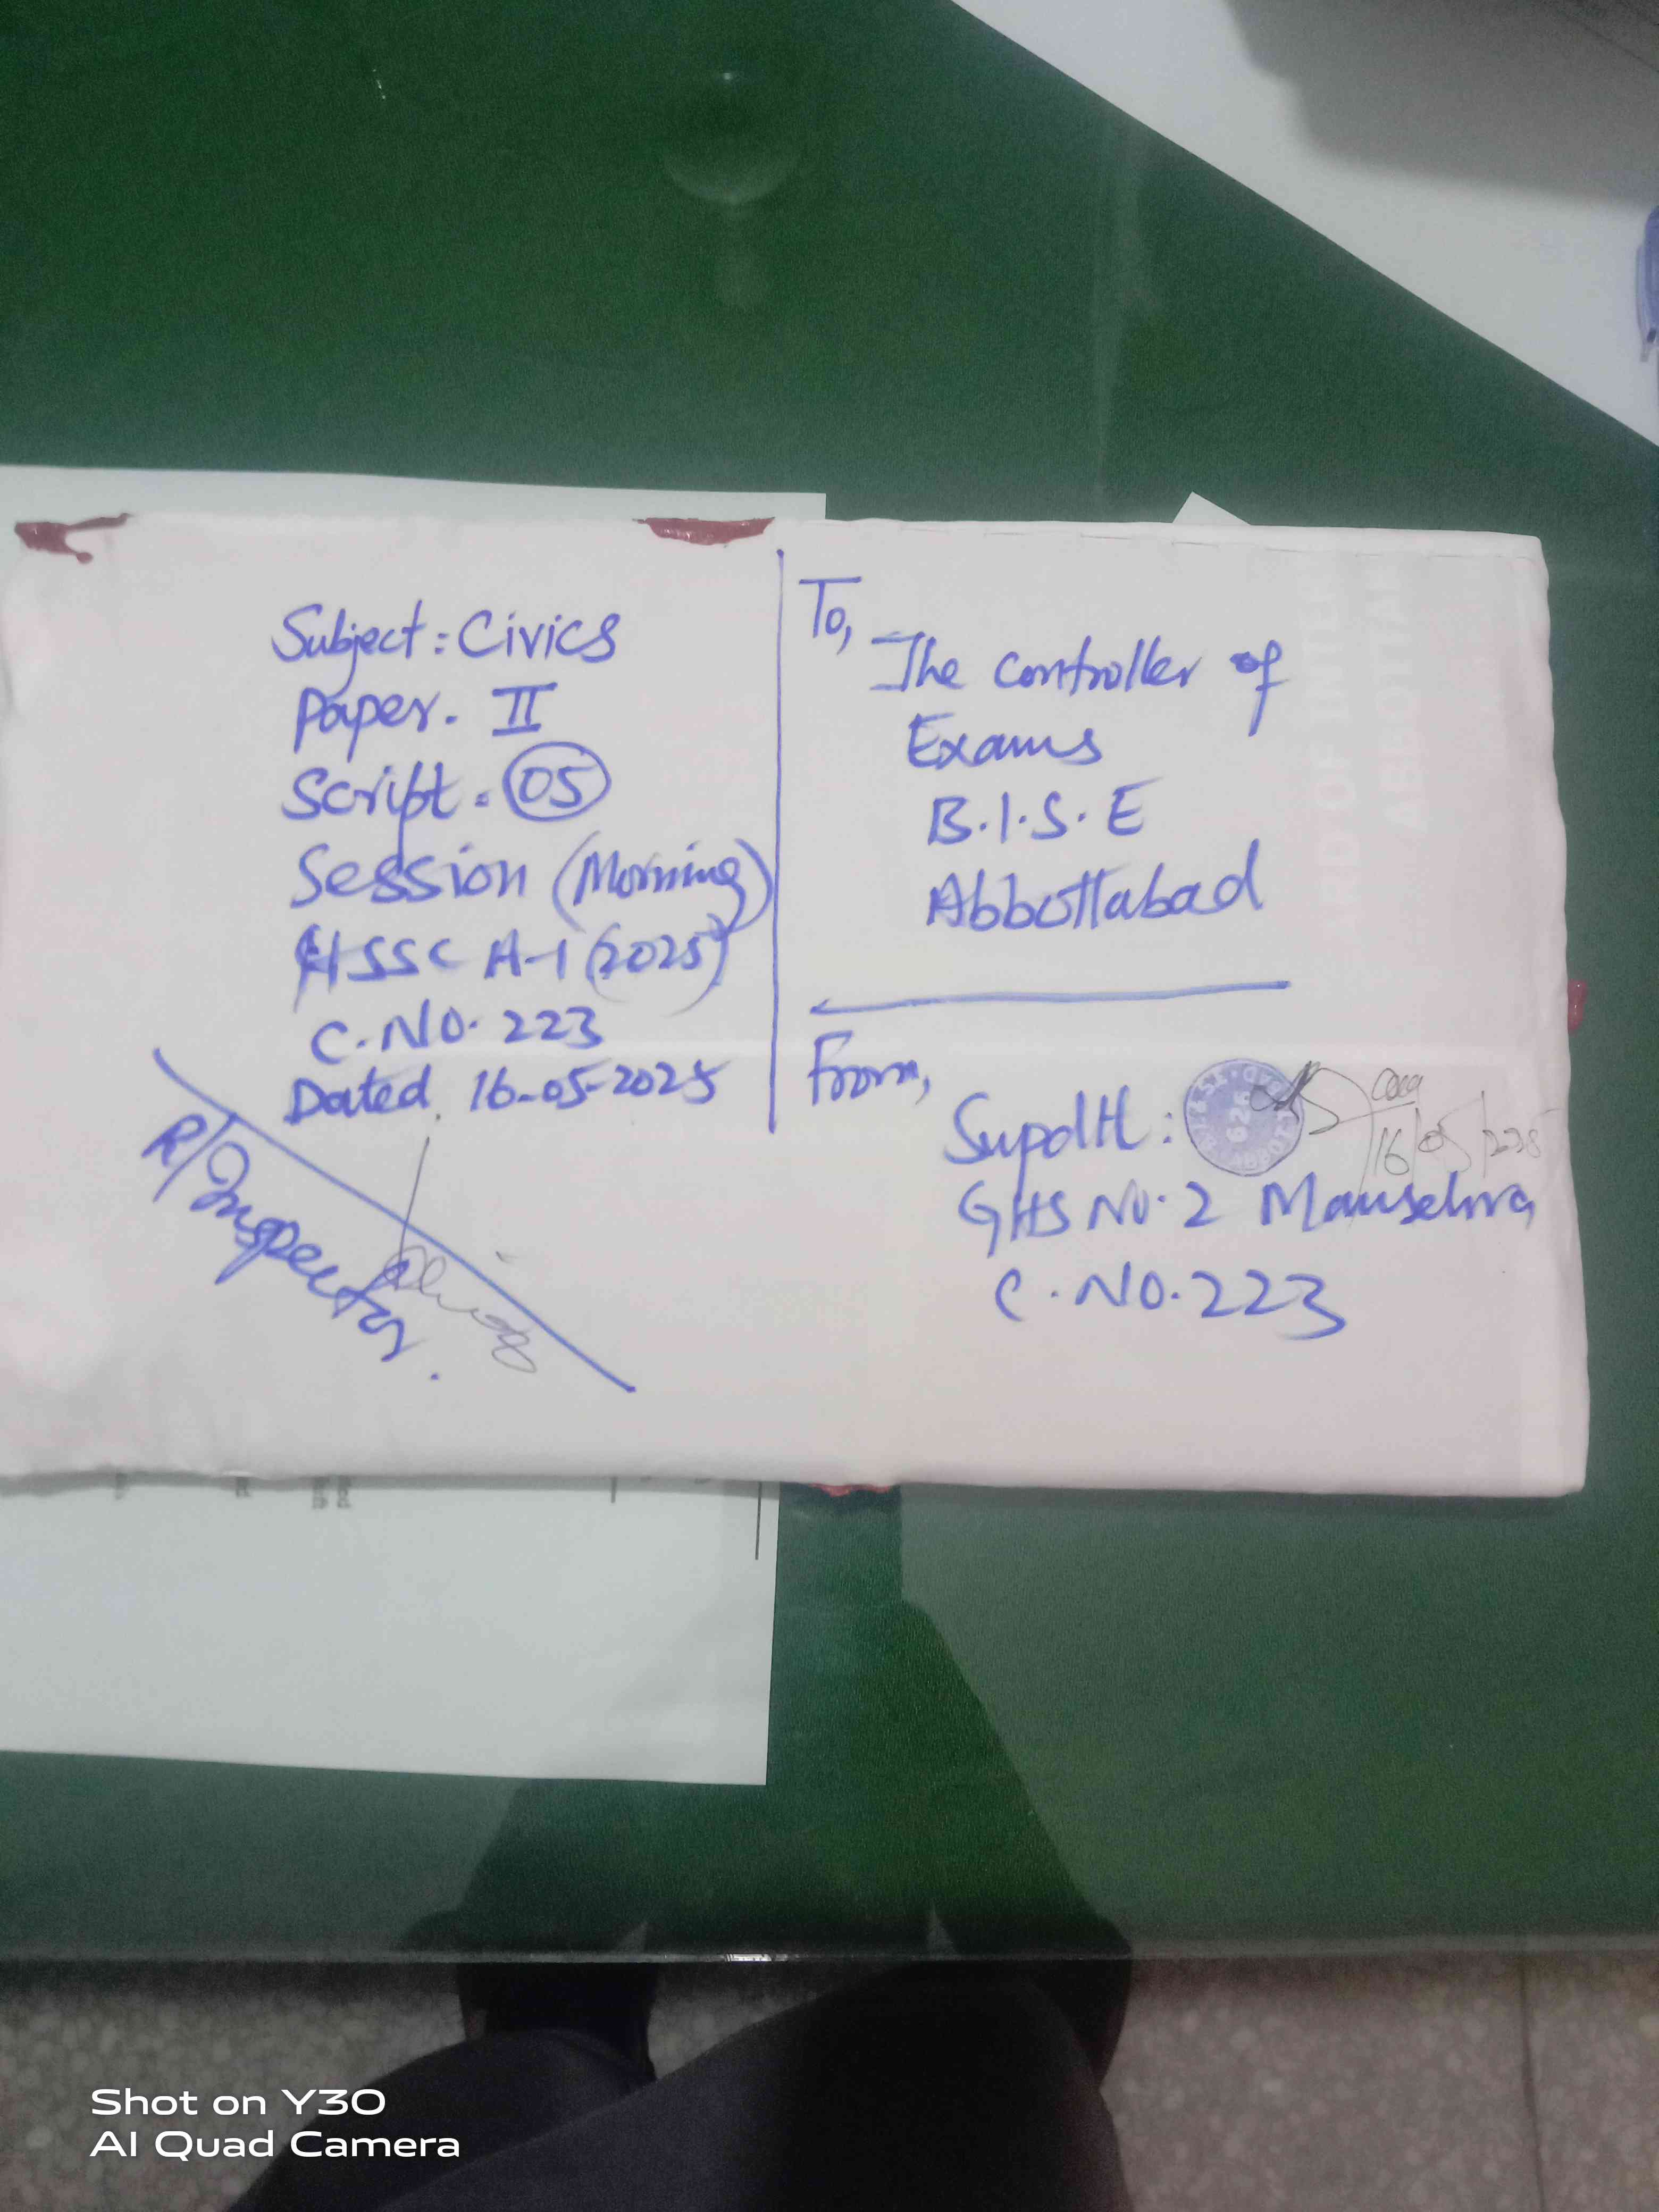 Subject: Civics
Paper. II
Script. 05
Session (Morning)
HSSC A-I (2025)
C.NO. 223
Dated. 16-05-2025
R/Inspector.
To,
The Controller of
Exams
B.I.S.E
Abbottabad
From,
Supdtt:
16/05/2025
GHS No. 2 Mansehra
C.NO.223
Shot on Y30
AI Quad Camera